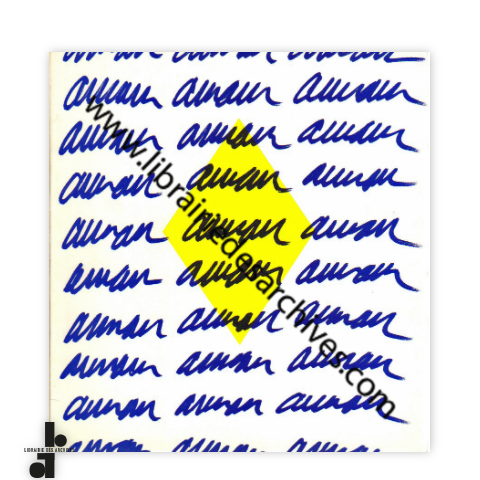 arman arman arman
arman arman arman
arman arman arman
arman arman arman
arman arman arman
arman arman arman
arman arman arman
arman arman arman
www.librairiedesarchives.com
LIBRAIRIE DES ARCHIVES